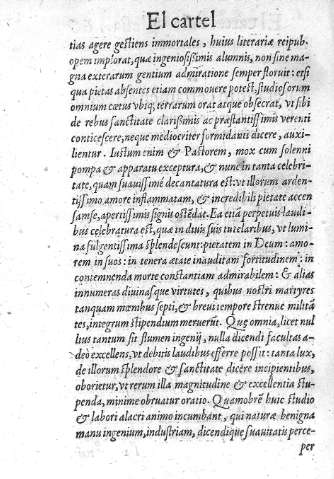 El cartel
tias agere gestiens immortales, huius literariæ reipub.
opem implorat, quæ ingeniosissimis alumnis, non sine mag
na exterarum gentium admiratione semper floruit: etsi
qua pietas absentes etiam commouere potest, studiosorum
omnium cœtus vbiq; terrarum orat atque obsecrat, vt sibi
de rebus sanctitate clarissimis ac præstantissimis verenti
conticescere, neque mediocriter formidanti dicere, auxi-
lientur. Iustum enim & Pastorem, mox cum solenni
pompa & apparatu exceptura, & nunc in tanta celebri-
tate, quam suauissimè decantatura est: vt illorum arden-
tissimo amore inflammatam, & incredibili pietate accen
sam se, apertissimis signis ostēdat. Ea euā perpetuis laudi-
bus celebratura est, quæ in diuis suis tutelaribus, vt lumi-
na fulgentissima splendescunt: pietatem in Deum: amo-
rem in suos: in tenera ætate inauditam fortitudinem: in
contemnenda morte constantiam admirabilem: & alias
innumeras diuinasque virtutes, quibus nostri martyres
tanquam mœnibus septi, & breui tempore strenue militā
tes, integrum stipendium meruerūt. Quę omnia, licet nul
lius tantum sit flumen ingenij, nulla dicendi facultas a-
deò excellens, vt debitis laudibus efferre possit: tanta lux,
de illorum splendore & sanctitate dicere incipientibus,
oborietur, vt rerum illa magnitudine & excellentia stu-
penda, minime obruatur oratio. Quamobrē huic studio
& labori alacri animo incumbant, qui naturæ benigna
manu ingenium, industriam, dicendique suauitatis perce-
per